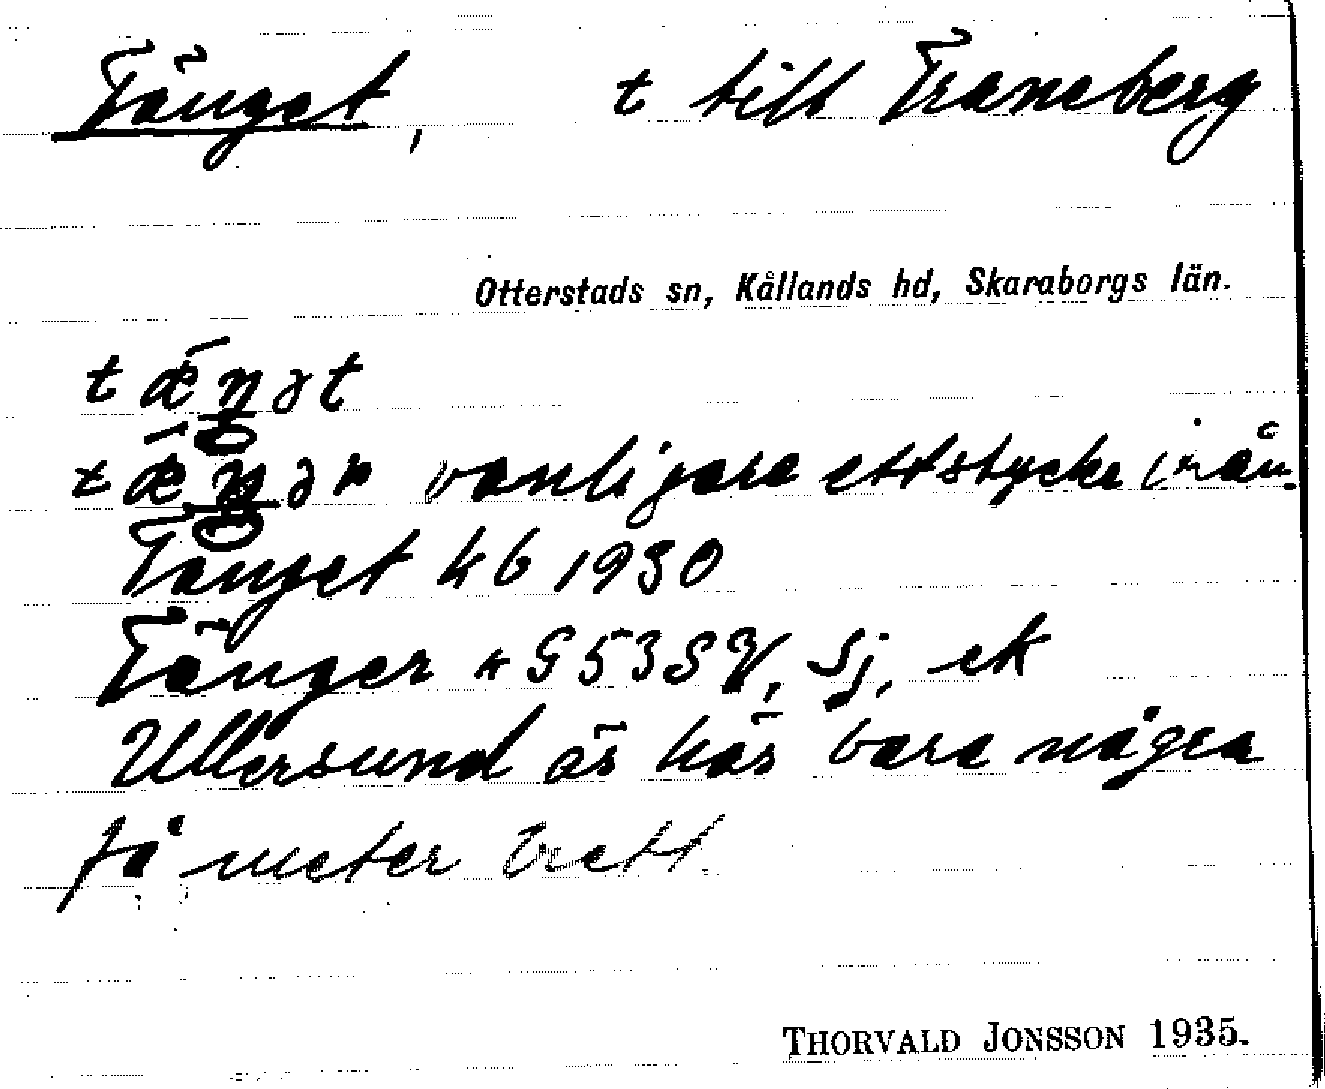 Tånget, t till Traneberg
Otterstads sn, Kållands hd, Skaraborgs län.
tæŋət
tæŋər vanligare ett stycke ifrån.
Tånget kb 1930
Tånger G53SV, Sj, ek
Ullersund är här bara några
få meter brett.
THORVALD JONSSON 1935.